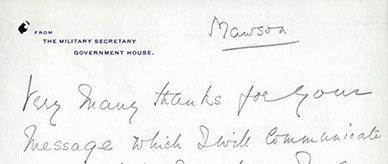 FROM
THE MILITARY SECRETARY
GOVERNMENT HOUSE.
Mawson.
Very Many thanks for Your
Message which I will Communicate